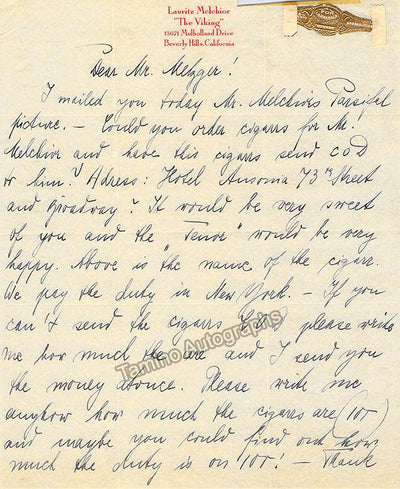 Lauritz Melchior
"The Viking"
13671 Mulholland Drive
Beverly Hills, California
Dear Mr. Metzger!
I mailed you today Mr. Melchiors Parsifal
picture. — Could you order cigarrs for Mr.
Melchior and have this cigarrs send COD
to him? Adress: Hotel Ansonia 73th Street
and Broadway? It would be very sweet
of you and the "Tenor" would be very
happy. Above is the name of the cigarr.
We pay the duty in New York. — If you
can't send the cigarrs please write
me how much the are and I send you
the money atonce. Please write me
anyhow how much the cigarrs are (100)
and maybe you could find out how
much the duty is on 100! — Thank
Tamino Autographs